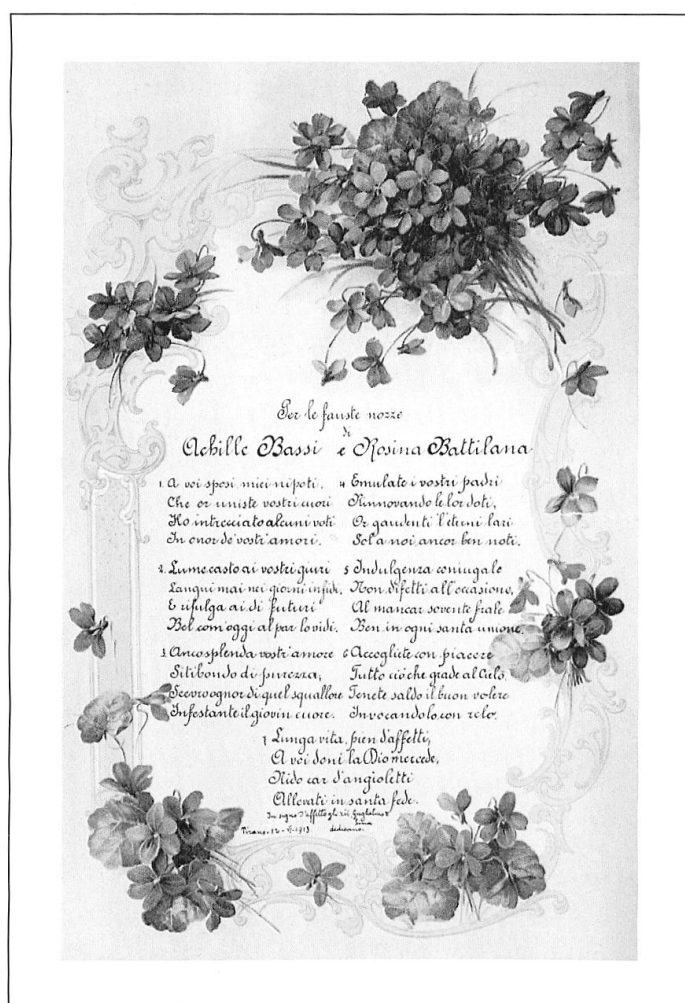 Per le fauste nozze
di
Achille Bassi e Rosina Battilana
1. A voi sposi miei nipoti,
Che or uniste vostri cuori
Ho intrecciato alcuni voti
In onor de' vostr'amori.
2. Lume casto ai vostri giuri
Langui mai nei giorni infidi,
E rifulga ai dì futuri
Bel com'oggi al par lo vidi.
3. Ancosplenda vostr'amore
Sitibondo di purezza,
Scevro ognor di quel squallore
Infestante il giovin cuore.
4 Emulate i vostri padri
Rinnovando le lor doti,
Or gaudenti l'eterni lari
Sol a noi ancor ben noti.
5 Indulgenza coniugale
Non difetti all'occasione,
Al mancar sovente frale
Ben in ogni santa unione.
6 Accogliete con piacere
Tutto ciò che grade al Cielo.
Tenete saldo il buon volere
Invocandolo con zelo.
7 Lunga vita, pien d'affetti,
A voi doni la Dio mercede,
Nido car d'angioletti
Allevati in santa fede.
In segno d'affetto gli zii Guglielmo e
Tirano - 12 - 1913 dedicano.